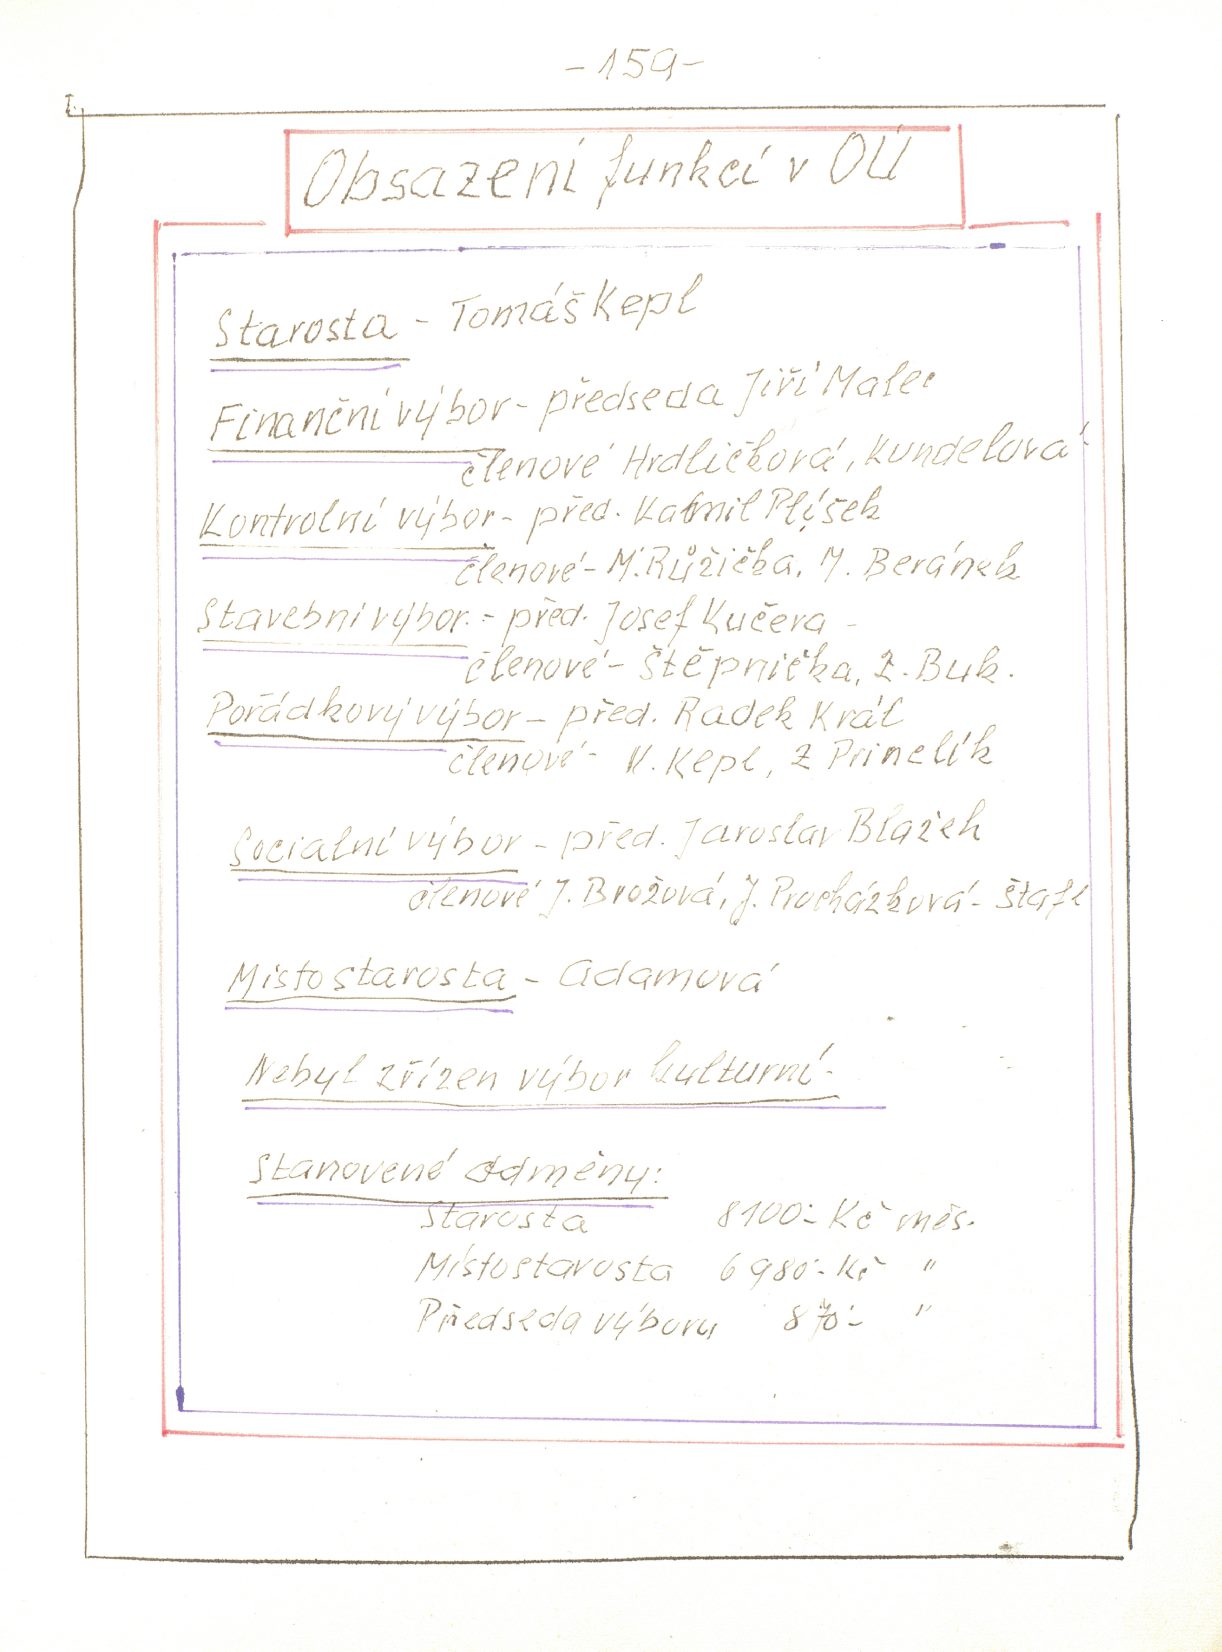 -159-
Obsazení funkcí v OÚ
Starosta - Tomáš Kepl
Finanční výbor - předseda Jiří Malec
členové Hrdličková, Kundelová
Kontrolní výbor - před. Kamil Plíšek
členové - M. Růžička, M. Beránek
Stavební výbor. - před. Josef Kučera -
členové - Štěpnička, Z. Buk.
Pořádkový výbor - před. Radek Král
členové - V. Kepl, Z Prinelík
Socialní výbor - před. Jaroslav Blažek
členové J. Brožová, J. Procházková - Štafl
Místostarosta - Adamová
Nebyl zřízen výbor kulturní -
Stanovené odměny:
Starosta 8100,- Kč měs.
Místostarosta 6980,- Kč "
Předseda výboru 870,- "